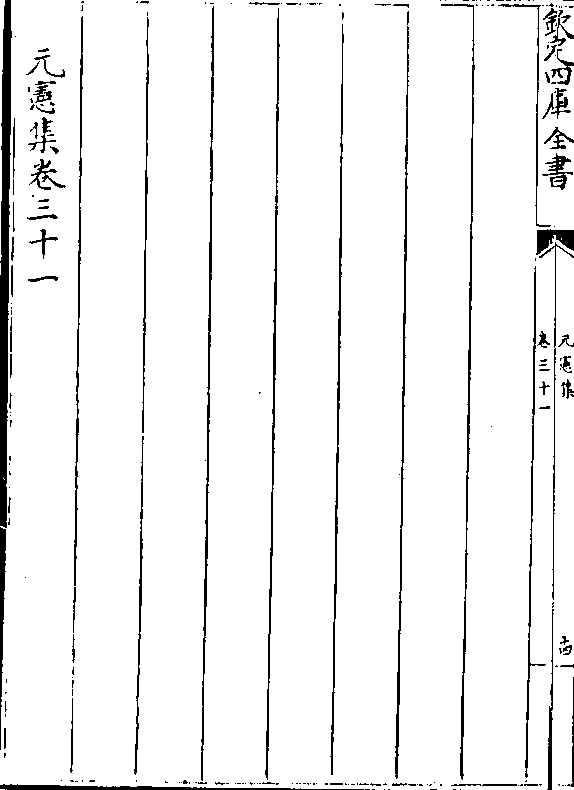 欽定四庫全書
元憲集
卷三十一
十四
元憲集卷三十一